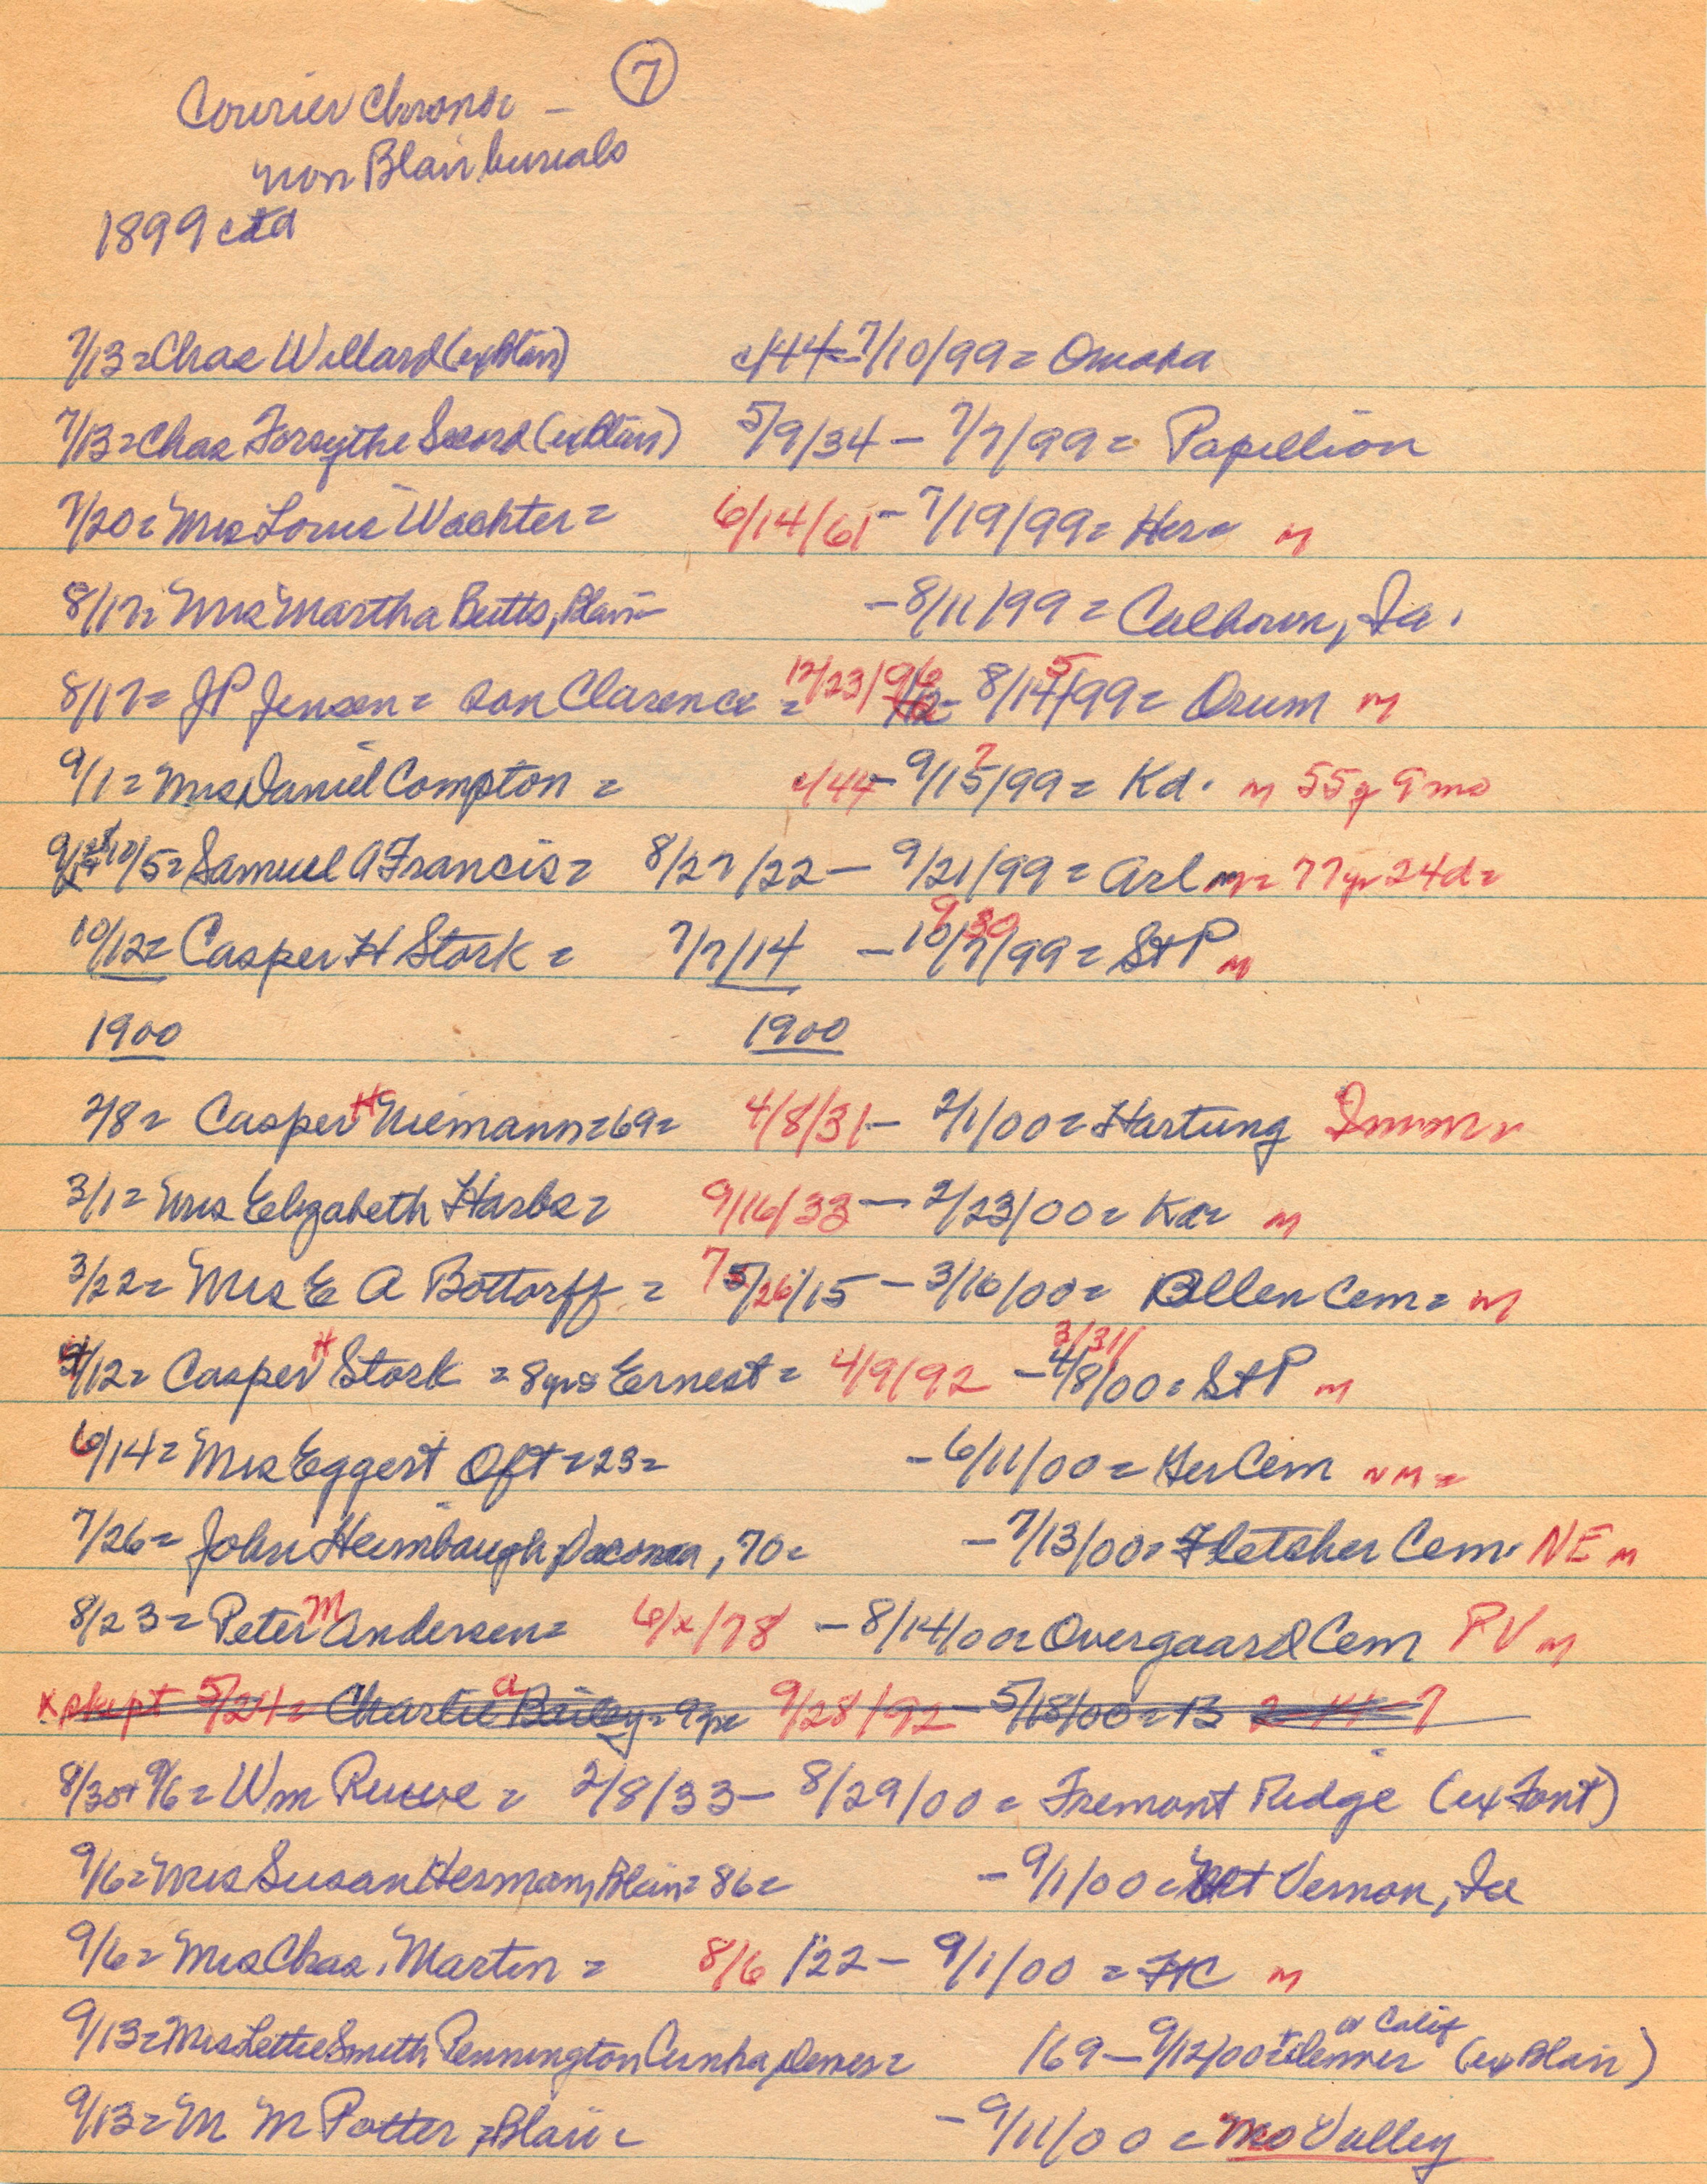 7
Courier Chrono -
non Blair burials
1899 ctd
7/13 = Chas Willard (ex Blair) c/44 - 7/10/99 = Omaha
7/13 = Chas Forsythe Secord (ex Blair) 5/9/34 - 7/7/99 = Papillion
7/20 = Mrs Louis Wachter = 6/14/61 - 7/19/99 = Her = m
8/17 = Mrs Martha Butts, Blair = - 8/11/99 = Calhoun, Ia.
8/17 = JP Jensen = son Clarence = 12/23/96 - 8/15/99 = Orum m
9/1 = Mrs Daniel Compton = c/44 - 9/ /99 = Kd. m 55y 9mo
10/5 = Samuel A Francis = 8/27/22 - 9/21/99 = Arl m = 77yr 24d =
10/12 = Casper H Stork = 7/7/14 - 9/30/99 = St P m
1900 1900
2/8 = Casper H Niemann = 69 = 4/8/31 - 2/1/00 = Hartung
3/1 = Mrs Elizabeth Harbs = 9/16/33 - 2/23/00 = Ka = m
3/22 = Mrs E A Bottorff = 7/26/15 - 3/16/00 = Allen Cem = m
4/12 = Casper H Stork = 8yrs Ernest = 4/9/92 - 3/31/00 = St P m
6/14 = Mrs Eggert Oft = 23 = - 6/11/00 = Her Cem nm =
7/26 = John Heimbaugh, Dacoma, 70 = - 7/13/00 = Fletcher Cem. NE m
8/23 = Peter M Andersen = 6/x/78 - 8/14/00 = Overgaard Cem PV m
x pkipt 5/24 = Charlie A Bailey = 9yr = 9/28/92 - 5/18/00 = B 2-44-7
8/30 + 9/6 = Wm Ruwe = 2/8/33 - 8/29/00 = Fremont Ridge (ex Font)
9/6 = Mrs Susan Hermann, Blair = 86 = - 9/1/00 = Mt Vernon, Ia
9/6 = Mrs Chas. Martin = 8/6/22 - 9/1/00 = FtC m
or Calif
9/13 = Mrs Lettie Smith Pennington Cunha, Denver = /69 - 9/12/00 = Denver (ex Blair)
9/13 = M M Potter, Blair = - 9/11/00 = Mo Valley